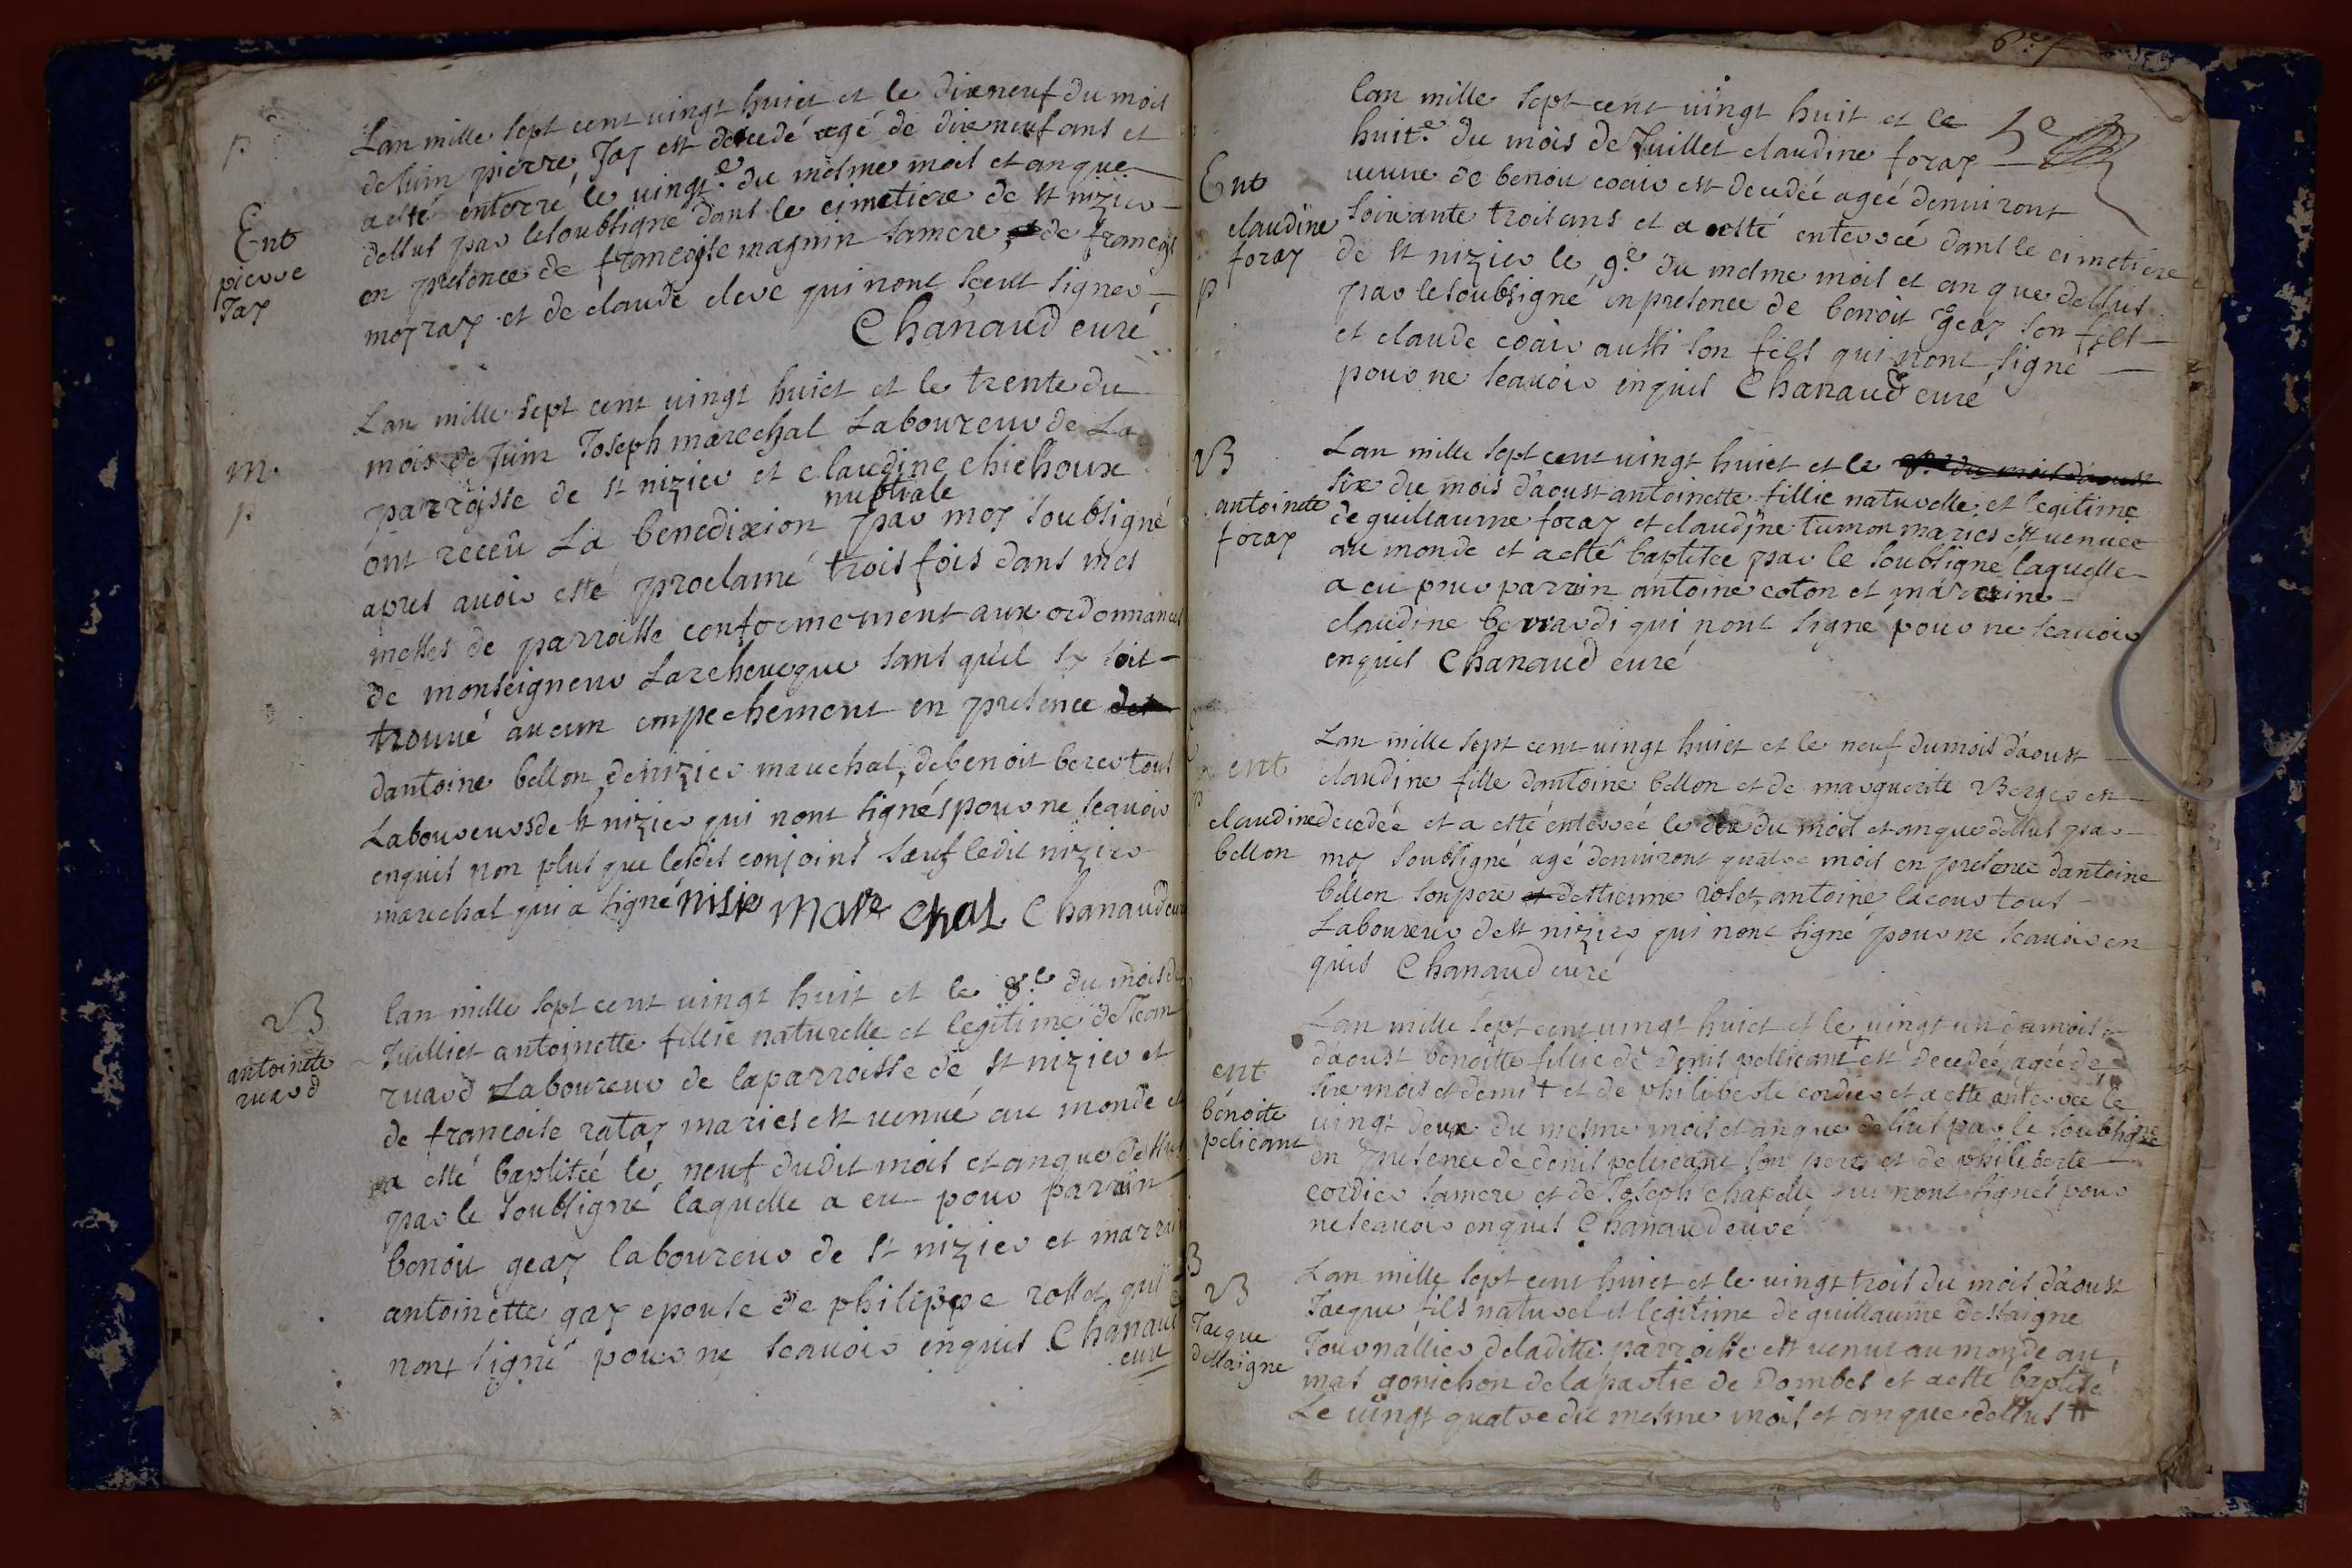 p
Ent
pierre
Jay
Lan mille sept cent uingt huict et le dixneuf du mois
de Juin pierre Jay est décedé agé de dixneuf ans et
a esté enterré le uingt.e du mesme mois et an que
dessus par le soubsigné dans le cimetiere de st nizier
en presence de francoise magnin sa mere, de francois
moyray et de claude clere qui nont sceut signer
Chanaud curé
m
p
Lan mille sept cent uingt huict et le trente du
mois de Juin Joseph marechal Laboureur de La
parroisse de st nizier et claudine chichoux
nubtiale
ont receû La benedixion par moy soubsigné
apres auoir esté proclamé trois fois dans mes
messes de parroisse conformement aux ordonnances
de monseigneur Larcheueque sans quil sy soit
trouué aucun empechement en presence
dantoine bellon, de nizier marechal, de benoit beres tous
Laboureurs de st nizier qui nont signés pour ne scauoir
enquis non plus que lesdit conjoins sauf ledit nizier
marechal qui a signé nisie mare chal Chanaud curé
B
antoinete
ruard
lan mille sept cent uingt huit et le 8.e du mois de
Juilliet antoinette fillie naturelle et legitime de Jean
ruard Laboureur de la parroisse de st nizier et
de francoise ratay maries est uenuë au monde et
a esté baptiseé le neuf dudit mois et an que dessus
par le soubsigné laquelle a eu pour parrain
benoit geay laboureur de st nizier et marraine
antoinette gay epouse de philippe rosset qui
nont signé pour ne scauoir enquis Chanaud
curé
5e
Ent
claudine
foray
p
lan mille sept cent uingt huit et le
huit.e du mois de Juillet claudine foray
ueuue de benoit coair est decedéé ageé denuiront
soixante trois ans et a esté enterreé dans le cimetiere
de st nizier le 9.e du mesme mois et an que dessus
par le soubsigné en presence de benoit geay son fils
et claude coair aussi son fils qui nont signé
pour ne scauoir enquis Chanaud curé
B
antoinete
foray
Lan mille sept cent uingt huict et le
six du mois daoust antoinette fillie naturelle et legitime
de guillaume foray et claudine tumon maries est uenuee
au monde et a esté baptisée par le soubsigné laquelle
a eu pour parrain antoine coton et marraine
claudine berrardi qui nont signé pour ne scauoir
enquis Chanaud curé
ent
claudine
bellon
Lan mille sept cent uingt huict et le neuf du mois daoust
claudine fille dantoine bellon et de marguerite Berger est
decedéé et a esté enterreé le dix du mois et an que dessus par
moy soubsigné agé denuiront quatre mois en presence dantoine
bellon son pere destienne roset, antoine lacour tous
Laboureur de st nizier qui nont signé pour ne scauoir en
quis Chanaud curé
ent
benoite
pelicant
Lan mille sept cent uingt huict et le uingt un du mois
daoust benoitte fillie de denis pellicant + est decedéé, agée de
six mois et demi + et de philiberte cordier et a esté enterreé le
uingt deux du mesme mois et an que dessus par le soubsigné
en presence de denis pelicant son pere et de philiberte
cordier sa mere et de Joseph chapelle qui nont signés pour
ne scauoir enquis Chanaud curé
B
Jacque
dessaigne
Lan mille sept cent huict et le uingt trois du mois daoust
Jacque fils naturel et legitime de guillaume dessaigne
Journallier de laditte parroisse est uenu au monde au
mas gonichon de la partie de dombes et a esté baptisé
Le uingt quatre du mesme mois et an que dessus